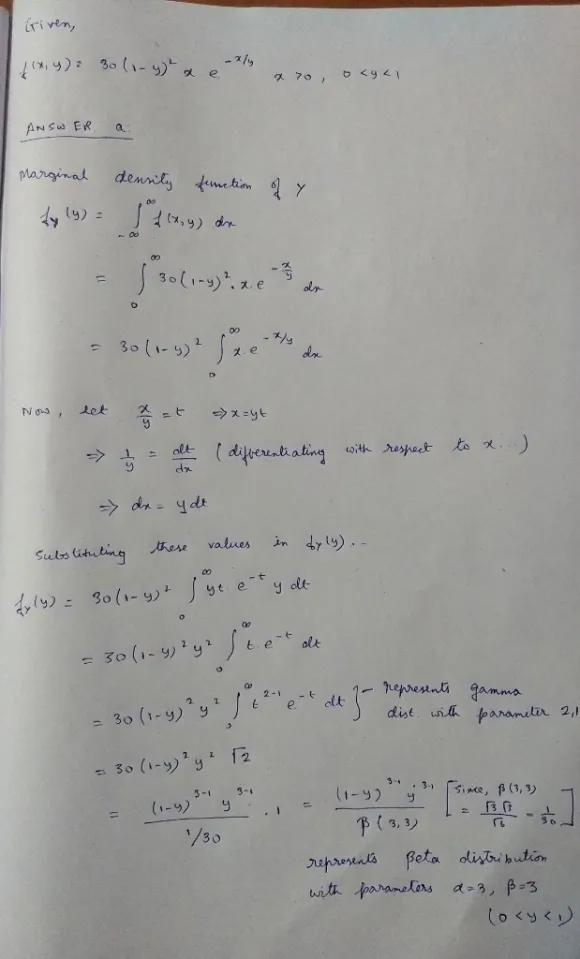 Given,
f(x,y) = 30(1-y)² x e^(-x/y) x>0, 0<y<1
ANSWER a.
Marginal density function of Y
f_Y(y) = ∫_{-∞}^{∞} f(x,y) dx
= ∫_0^∞ 30(1-y)². x. e^(-x/y) dx
= 30(1-y)² ∫_0^∞ x. e^(-x/y) dx
Now, let x/y = t ⇒ x=yt
⇒ 1/y = dt/dx (differentiating with respect to x...)
⇒ dx = y dt
Substituting these values in f_Y(y)...
f_Y(y) = 30(1-y)² ∫_0^∞ yt. e^(-t) y dt
= 30(1-y)² y² ∫_0^∞ t. e^(-t) dt
= 30(1-y)² y² ∫_0^∞ t^(2-1) e^(-t) dt } - represents gamma
dist. with parameter 2,1
= 30(1-y)² y² Γ2
= (1-y)^(3-1) y^(3-1) / (1/30) . 1 = (1-y)^(3-1) y^(3-1) / β(3,3) [Since, β(3,3) = Γ3 Γ3 / Γ6 = 1/30]
represents Beta distribution
with parameters α=3, β=3
(0<y<1)